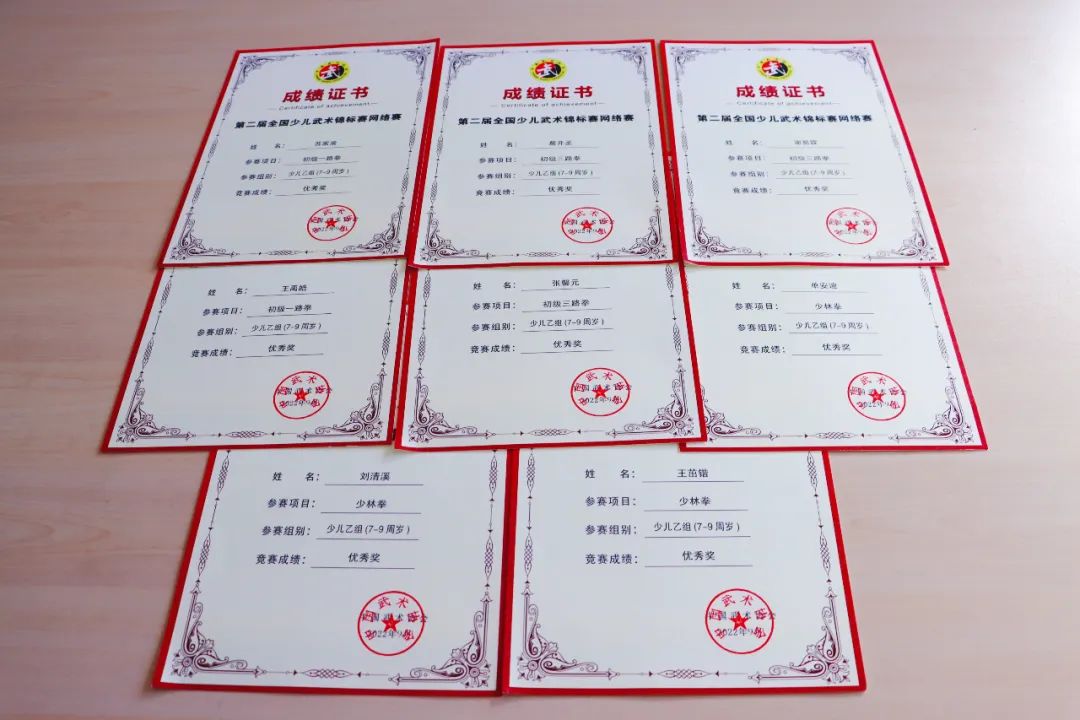 成绩证书
Certificate of achievement
第二届全国少儿武术锦标赛网络赛
姓 名：
参赛项目： 初级一路拳
参赛组别： 少儿乙组(7-9周岁)
竞赛成绩： 优秀奖
2022年9月
成绩证书
Certificate of achievement
第二届全国少儿武术锦标赛网络赛
姓 名：
参赛项目： 初级三路拳
参赛组别： 少儿乙组(7-9周岁)
竞赛成绩： 优秀奖
2022年9月
成绩证书
Certificate of achievement
第二届全国少儿武术锦标赛网络赛
姓 名：
参赛项目： 初级三路拳
参赛组别： 少儿乙组(7-9周岁)
竞赛成绩： 优秀奖
2022年9月
姓 名： 王禹皓
参赛项目： 初级一路拳
参赛组别： 少儿乙组(7-9周岁)
竞赛成绩： 优秀奖
2022年9月
姓 名： 张馨元
参赛项目： 初级三路拳
参赛组别： 少儿乙组(7-9周岁)
竞赛成绩： 优秀奖
2022年9月
姓 名： 单安迪
参赛项目： 少林拳
参赛组别： 少儿乙组(7-9周岁)
竞赛成绩： 优秀奖
2022年9月
姓 名： 刘清溪
参赛项目： 少林拳
参赛组别： 少儿乙组(7-9周岁)
竞赛成绩： 优秀奖
2022年9月
姓 名： 王茁锴
参赛项目： 少林拳
参赛组别： 少儿乙组(7-9周岁)
竞赛成绩： 优秀奖
2022年9月